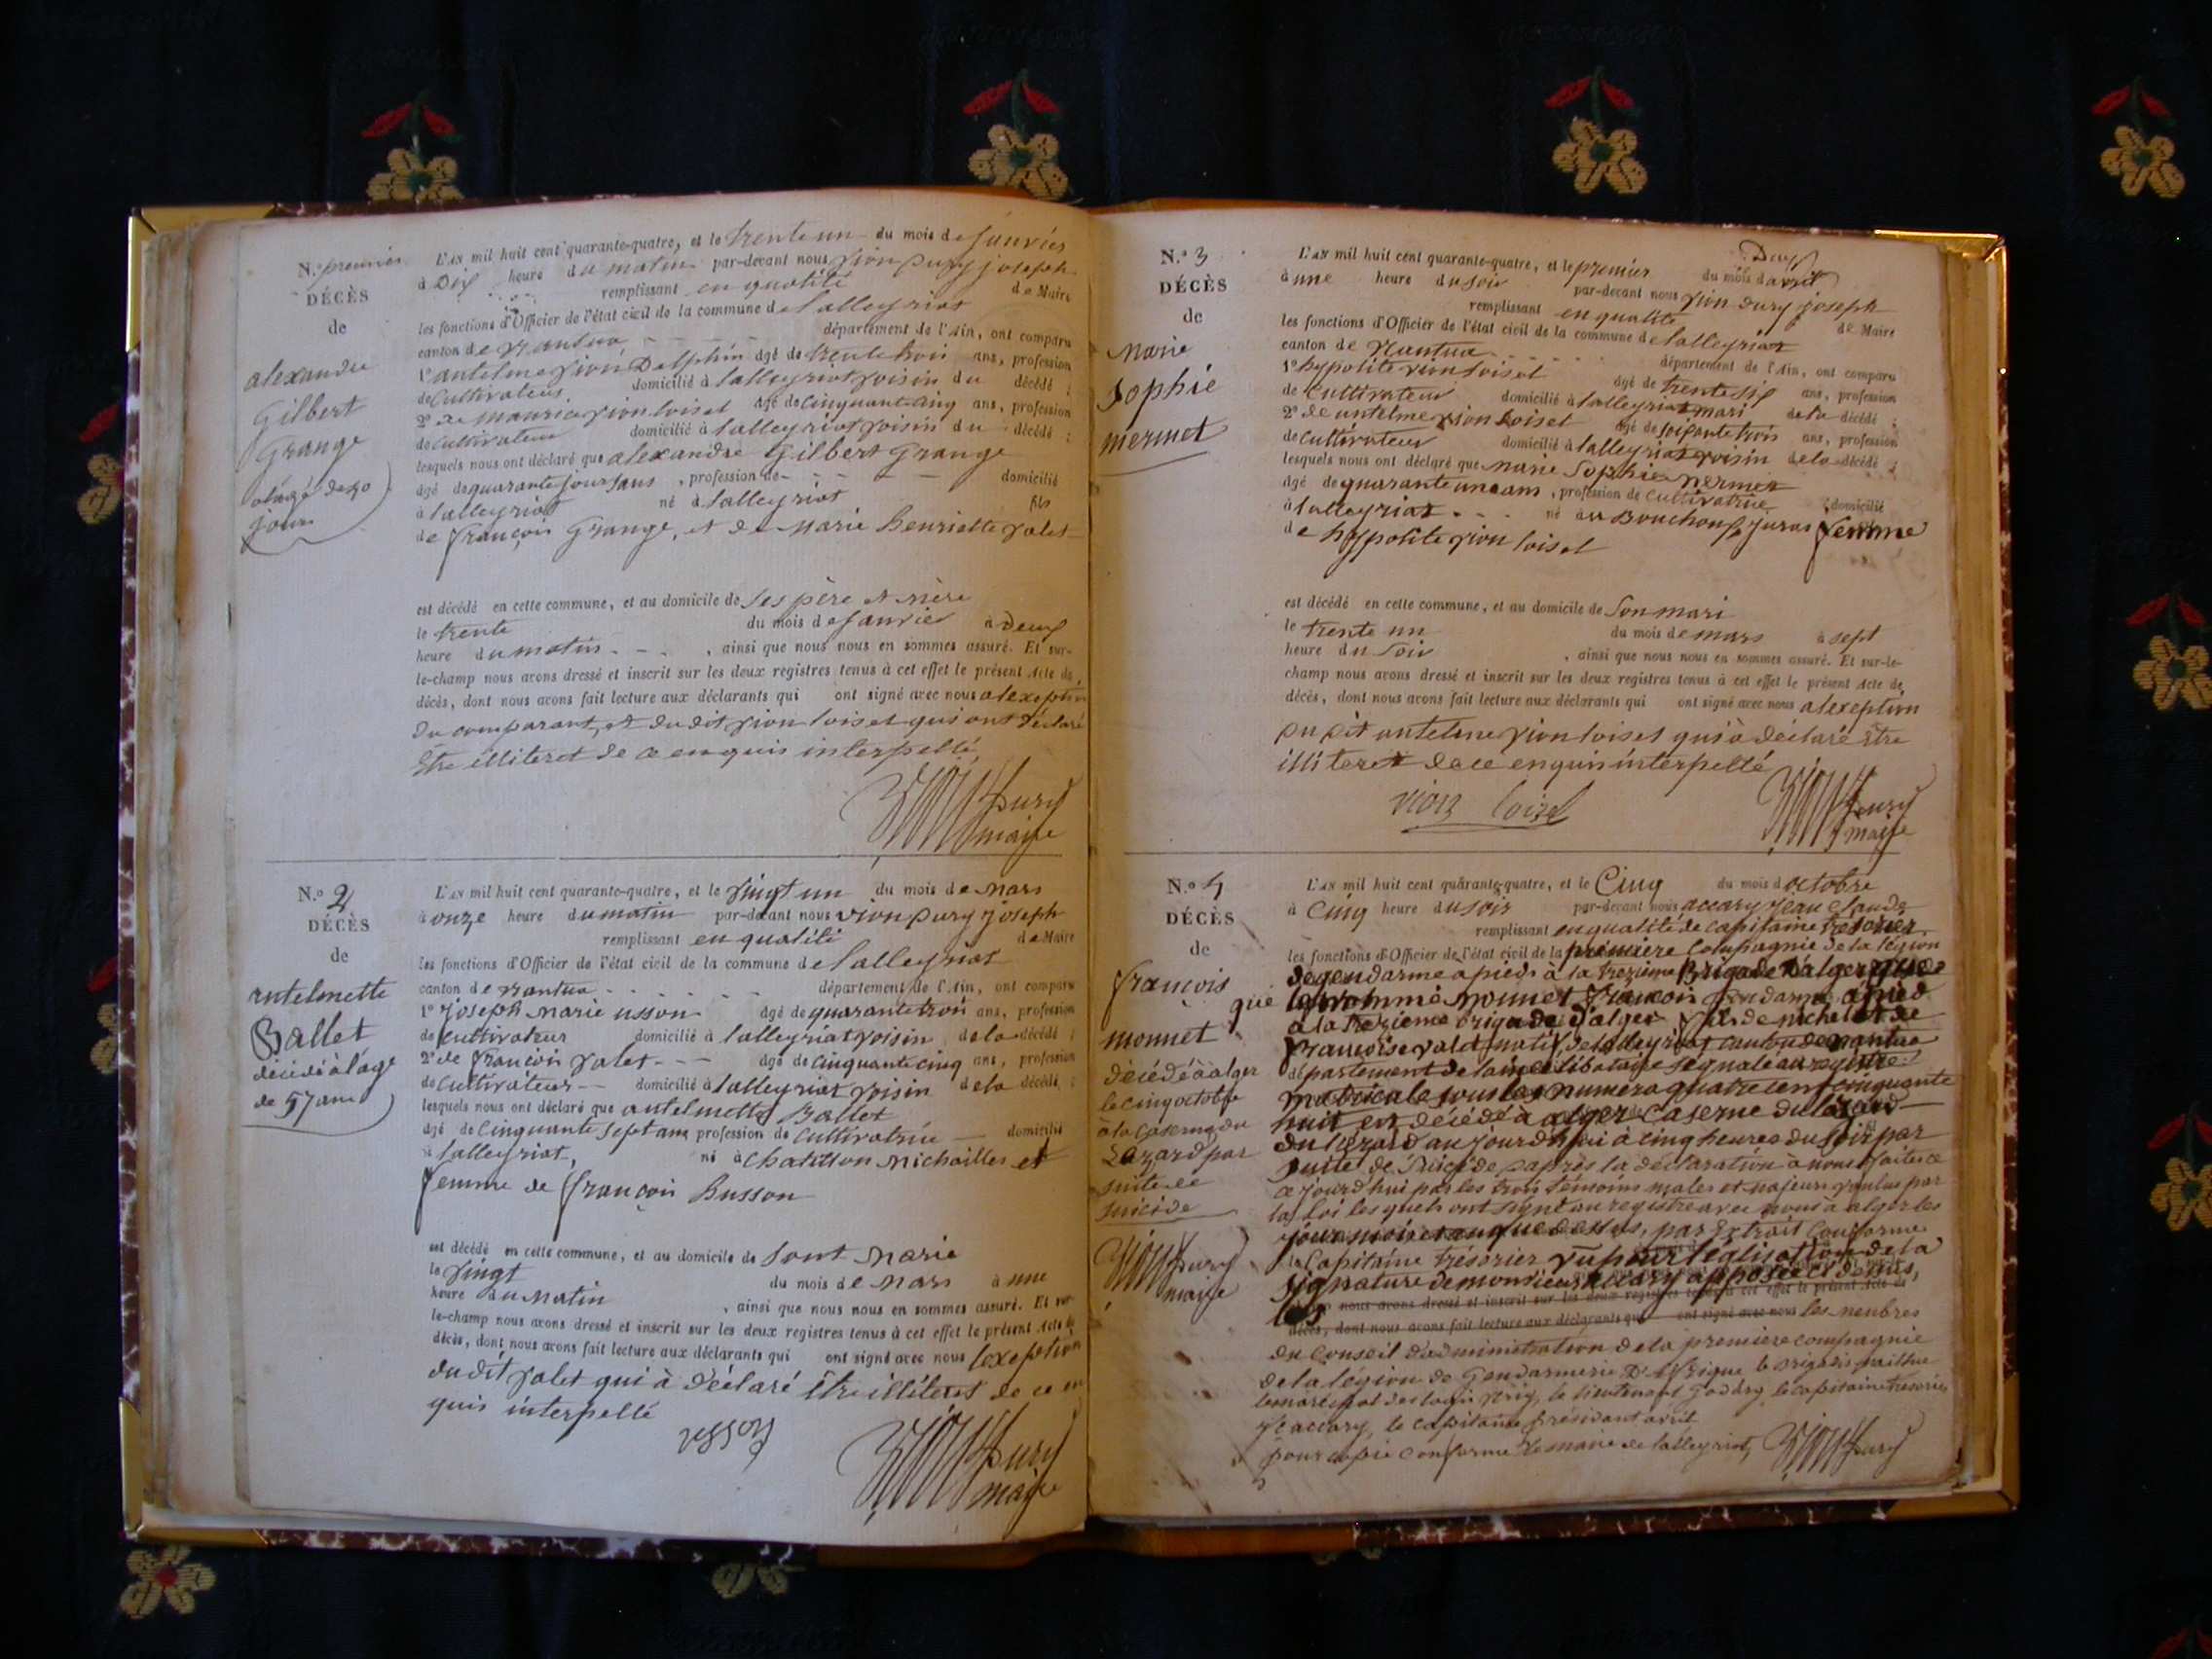 N.º premier
DÉCÈS
de
alexandre
Gilbert
Grange
a lâgé de 40
jours
L'AN mil huit cent quarante-quatre, et le trente un du mois de janvier
à Dix heure du matin par-devant nous Vion Dury joseph
remplissant en qualité de Maire
les fonctions d'Officier de l'état civil de la commune de lalleyriat
canton de nantua département de l'Ain, ont comparu
1º antelme Vion Delphin âgé de trente trois ans, profession
de Cultivateur. domicilié à lalleyriat voisin du décédé ;
2º de maurice Vion loiset âgé de cinquante cinq ans, profession
de Cultivateur domicilié à lalleyriat voisin du décédé ;
lesquels nous ont déclaré que alexandre Gilbert Grange
âgé de quarante jours , profession de domicilié
à lalleyriat né à lalleyriat fils
de françois Grange, et de Marie henriette jalet
est décédé en cette commune, et au domicile de Ses père et mère
le trente du mois de janvier à Deux
heure du matin , ainsi que nous nous en sommes assuré. Et sur-
le-champ nous avons dressé et inscrit sur les deux registres tenus à cet effet le présent Acte de
décès, dont nous avons fait lecture aux déclarants qui ont signé avec nous alexeption
du comparant, et du dit Vion loiset qui ont déclaré
être illiteret de ce enquis interpellé
Vion Dury
maire
N.º 2
DÉCÈS
de
antelmette
Ballet
décédé à lâge
de 57 ans
L'AN mil huit cent quarante-quatre, et le Vingt un du mois de Mars
à onze heure du matin par-devant nous Vion Dury joseph
remplissant en qualité de Maire
les fonctions d'Officier de l'état civil de la commune de lalleyriat
canton de nantua département de l'Ain, ont comparu
1º joseph marie usson âgé de quarante trois ans, profession
de Cultivateur domicilié à lalleyriat voisin de la décédé ;
2º de françois jalet âgé de cinquante cinq ans, profession
de Cultivateur domicilié à lalleyriat voisin de la décédé ;
lesquels nous ont déclaré que antelmette Ballet
âgé de Cinquante Sept ans profession de Cultivatrice domicilié
à lalleyriat, né à Chatillon michailles et
femme de françois husson
est décédé en cette commune, et au domicile de Sont Marie
le Vingt du mois de Mars à une
heure du Matin , ainsi que nous nous en sommes assuré. Et sur-
le-champ nous avons dressé et inscrit sur les deux registres tenus à cet effet le présent Acte de
décès, dont nous avons fait lecture aux déclarants qui ont signé avec nous lexeption
du dit jalet qui à déclaré être illiteret de ce en
quis interpellé
usson
Vion Dury
maire
N.º 3
DÉCÈS
de
Marie
Sophie
mermet
Deux
L'AN mil huit cent quarante-quatre, et le premier du mois d'avril
à une heure du soir par-devant nous Vion Dury joseph
remplissant en qualité de Maire
les fonctions d'Officier de l'état civil de la commune de lalleyriat
canton de Nantua département de l'Ain, ont comparu
1º hypolite Vion loiset âgé de trente six ans, profession
de Cultivateur domicilié à lalleyriat mari de la décédé ;
2º de antelme Vion Loiset âgé de soixante trois ans, profession
de Cultivateur domicilié à lalleyriat voisin de la décédé ;
lesquels nous ont déclaré que marie Sophie Mermet
âgé de quarante un ans , profession de Cultivatrice domicilié
à lalleyriat né au Bouchoux jura femme
de hypolite Vion loiset
est décédé en cette commune, et au domicile de Son mari
le trente un du mois de mars à sept
heure du Soir , ainsi que nous nous en sommes assuré. Et sur-le-
champ nous avons dressé et inscrit sur les deux registres tenus à cet effet le présent Acte de
décès, dont nous avons fait lecture aux déclarants qui ont signé avec nous alexeption
du dit antelme Vion loiset qui à déclaré être
illiteret de ce enquis interpellé
vion loiset
Vion Dury
maire
N.º 4
DÉCÈS
de
françois
monnet
décédé à alger
le cinq octobre
a la Caserne du
Lézard par
suite de
suicide
Vion Dury
maire
L'AN mil huit cent quarante-quatre, et le Cinq du mois d'octobre
à Cinq heure du soir par-devant nous accary jean Claude
remplissant en qualité de capitaine trésorier
les fonctions d'Officier de l'état civil de la première Compagnie de la légion
de gendarme a pieds à la treizieme Brigade d'alger
que le nommé monnet françois gendarme à pied
a la treizieme brigade d'alger fils de michel et de
françoise jalet natif de lalleyriat canton de nantua
département de lain célibataire signalé au registre
matricule sous le numero quatre cent cinquante
huit est décédé à alger Caserne du lézard
du lézard aujourd'hui à cinq heures du soir par
suite de Suicide d'après la déclaration à nous faite ce
ce jourd'hui par les trois témoins males et majeurs voulus par
la loi les quels ont signé au registre avec nous à alger les
jour mois et an que dessus, par Extrait conforme
le Capitaine trésorier Vu pour légalisation de la
signature de monsieur accary apposée ci dessus,
nous avons dressé et inscrit sur les deux registres tenus à cet effet le présent Acte de
décès, dont nous avons fait lecture aux déclarants qui ont signé avec nous les menbres
du Conseil d'administration de la premiere compagnie
de la légion de Gendarmerie D'affrique le brigadier
le maréchal des logis le lieutenant le capitaine trésorier
accary, le capitaine présidant
pour copie conforme le maire de lalleyriat, Vion Dury